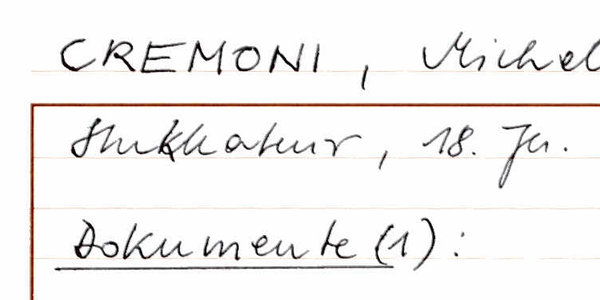 CREMONI, Michel
Stukkateur, 18. Jh.
Dokumente (1):